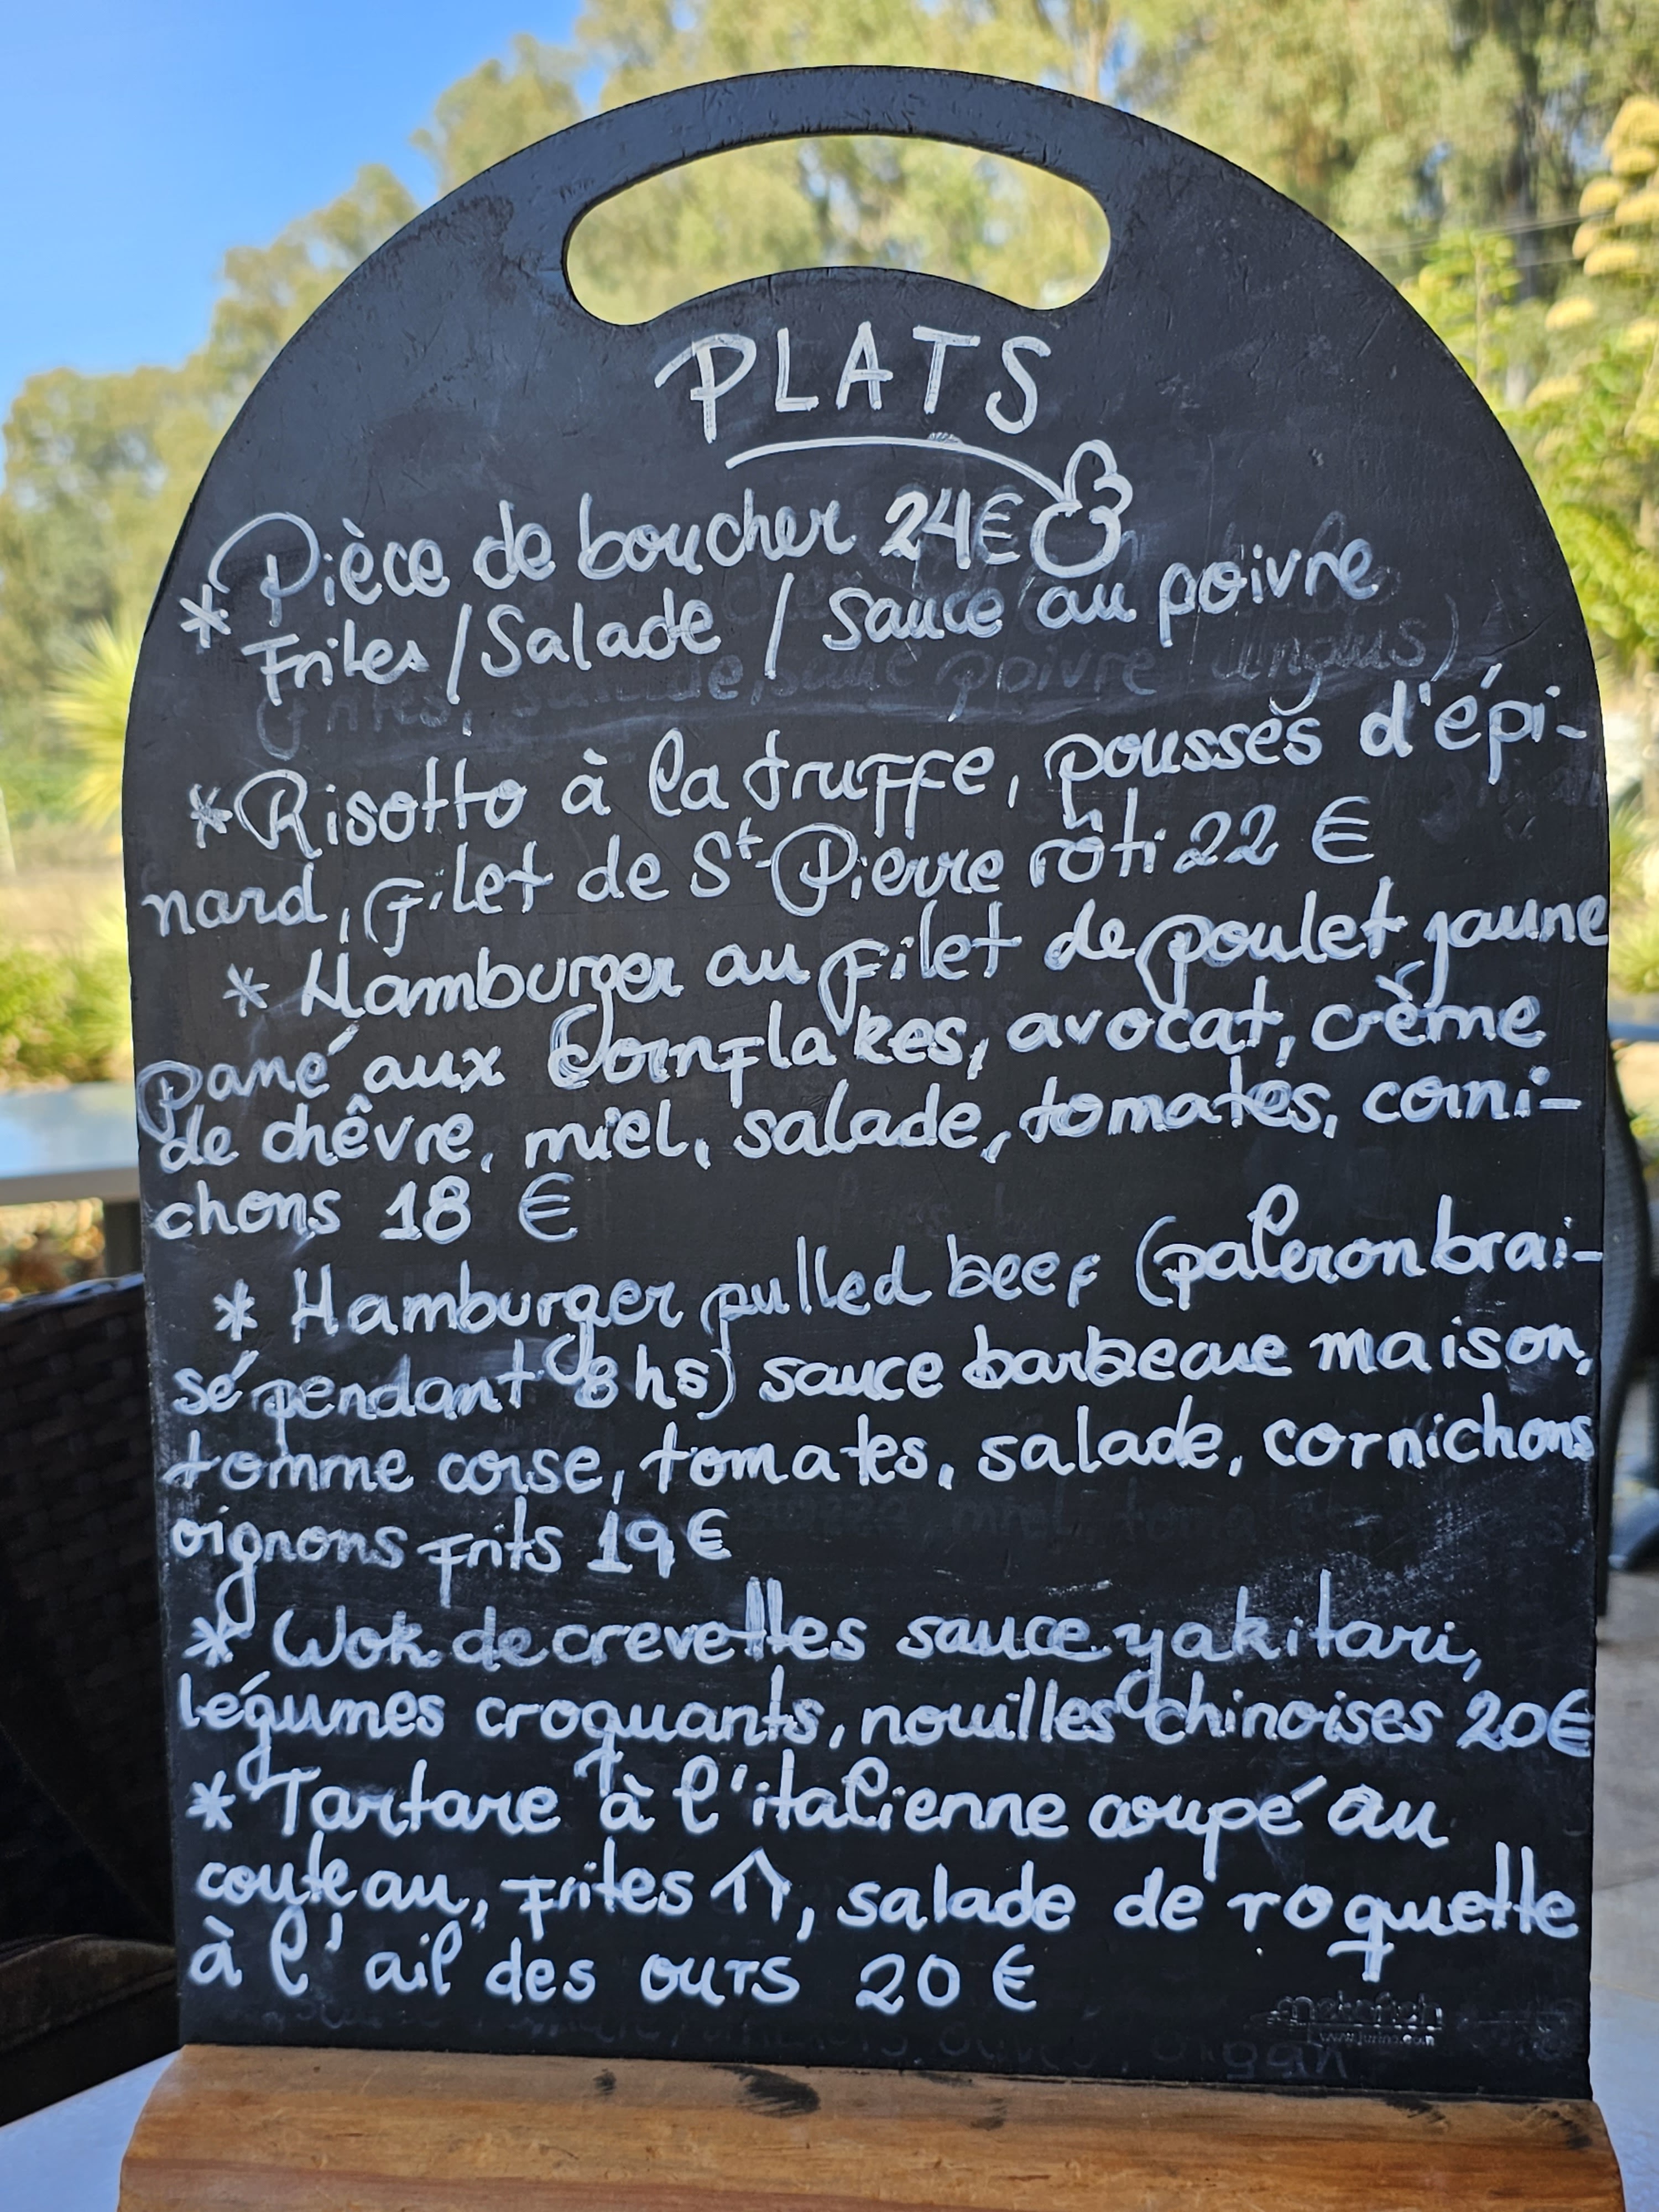 PLATS
* Pièce de boucher 24€
Frites / Salade / sauce au poivre
* Risotto à la truffe, pousses d'épi-
nard, filet de St-Pierre rôti 22 €
* Hamburger au filet de poulet jaune
pané aux Cornflakes, avocat, crème
de chêvre, miel, salade, tomates, corni-
chons 18 €
* Hamburger pulled beef (paleron brai-
sé pendant 8 hs) sauce barbecue maison,
tomme corse, tomates, salade, cornichons
oignons frits 19€
* Wok de crevettes sauce yakitari,
légumes croquants, nouilles chinoises 20€
* Tartare à l'italienne coupé au
couteau, frites, salade de roquette
à l'ail des ours 20 €